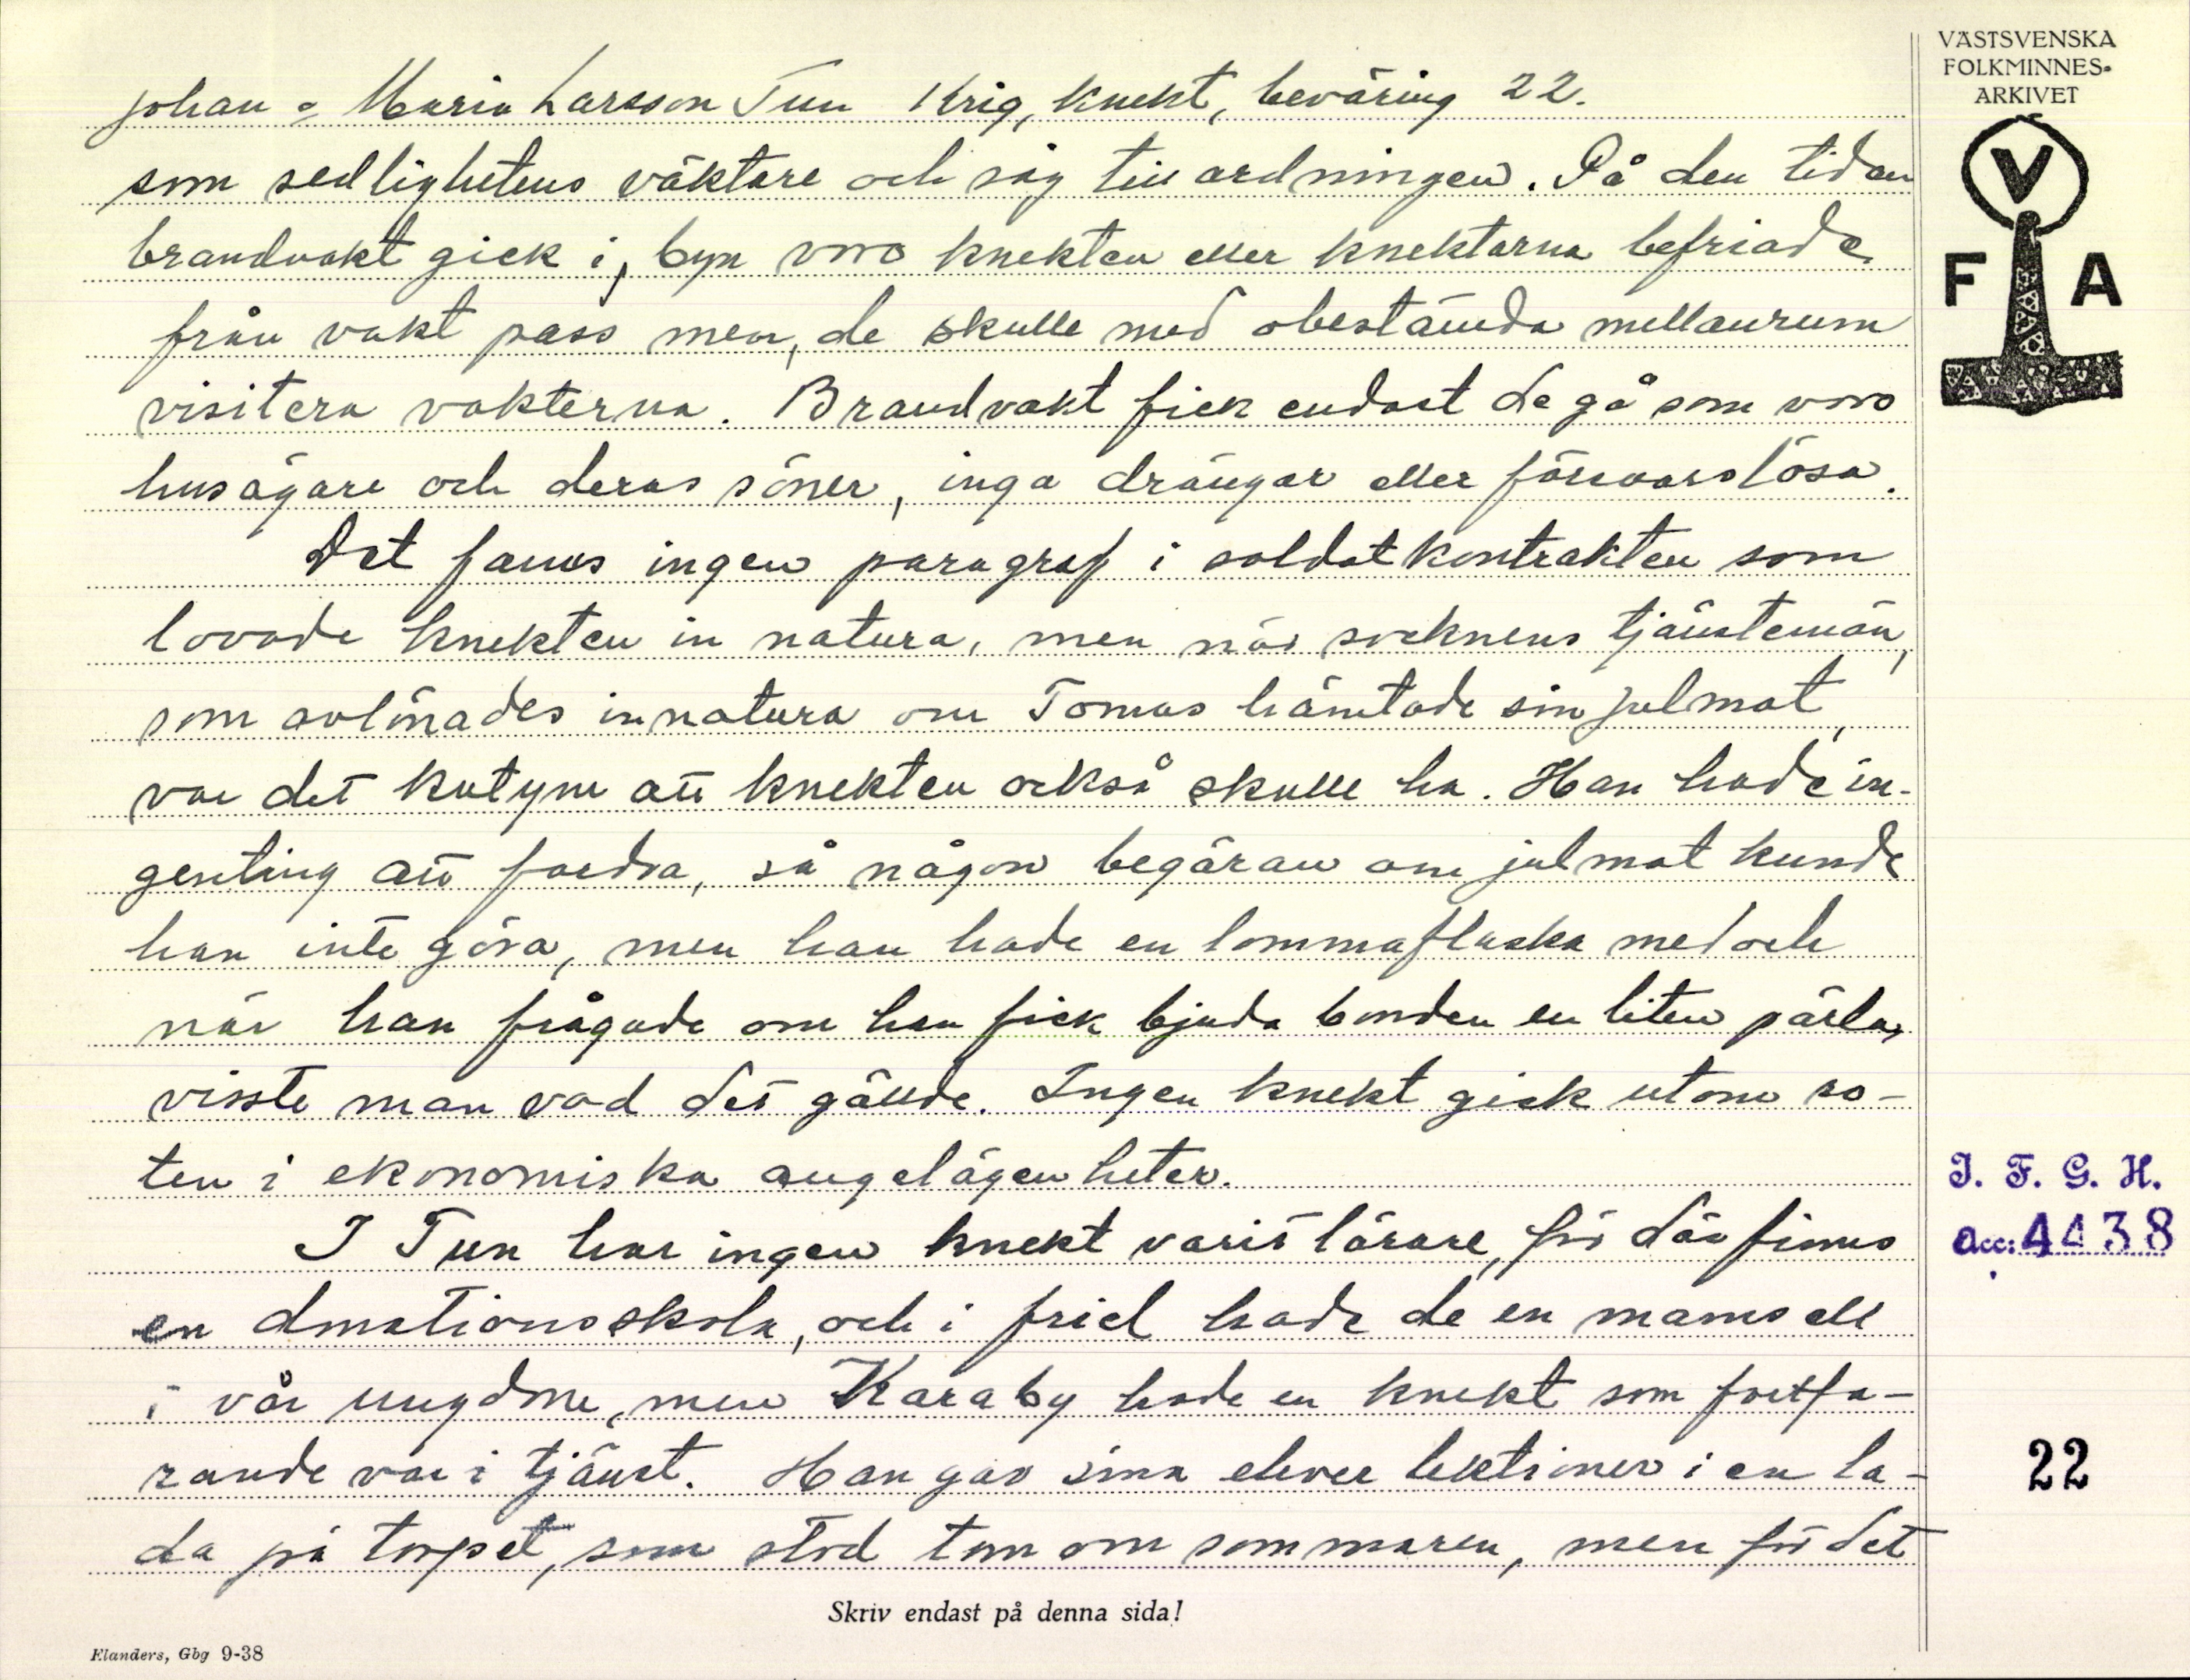 VÄSTSVENSKA
FOLKMINNES-
ARKIVET
V
F A
Johan o Maria Larsson Tun Krig, knekt, beväring 22.
som sedlighetens väktare och såg till ordningen. På den tiden
brandvakt gick i, byn voro knekten eller knektarna befriade
från vakt pass men, de skulle med obestämda mellanrum
visitera vakterna. Brandvakt fick endast de gå som voro
husägare och deras söner, inga drängar eller försvarslösa.
Det fanns ingen paragraf i soldatkontrakten som
lovade knekten in natura, men när socknens tjänstemän,
som avlönades in natura om Tomas hämtade sin julmat,
var det kutym att knekten också skulle ha. Han hade in-
genting att fordra, så någon begäran om julmat kunde
han inte göra, men han hade en lommaflaska med och
när han frågade om han fick bjuda bonden en liten pärla,
visste man vad det gällde. Ingen knekt gick utom ro-
ten i ekonomiska angelägenheter.
I Tun har ingen knekt varit lärare, för där finns
en donationsskola, och i Friel hade de en mamsell
i vår ungdom, men Karaby hade en knekt som fortfa-
rande var i tjänst. Han gav sina elever lektioner i en la-
da på torpet, som stod tom om sommaren, men för det
I. F. G. H.
Acc: 4438
22
Skriv endast på denna sida!
Elanders, Gbg 9-38